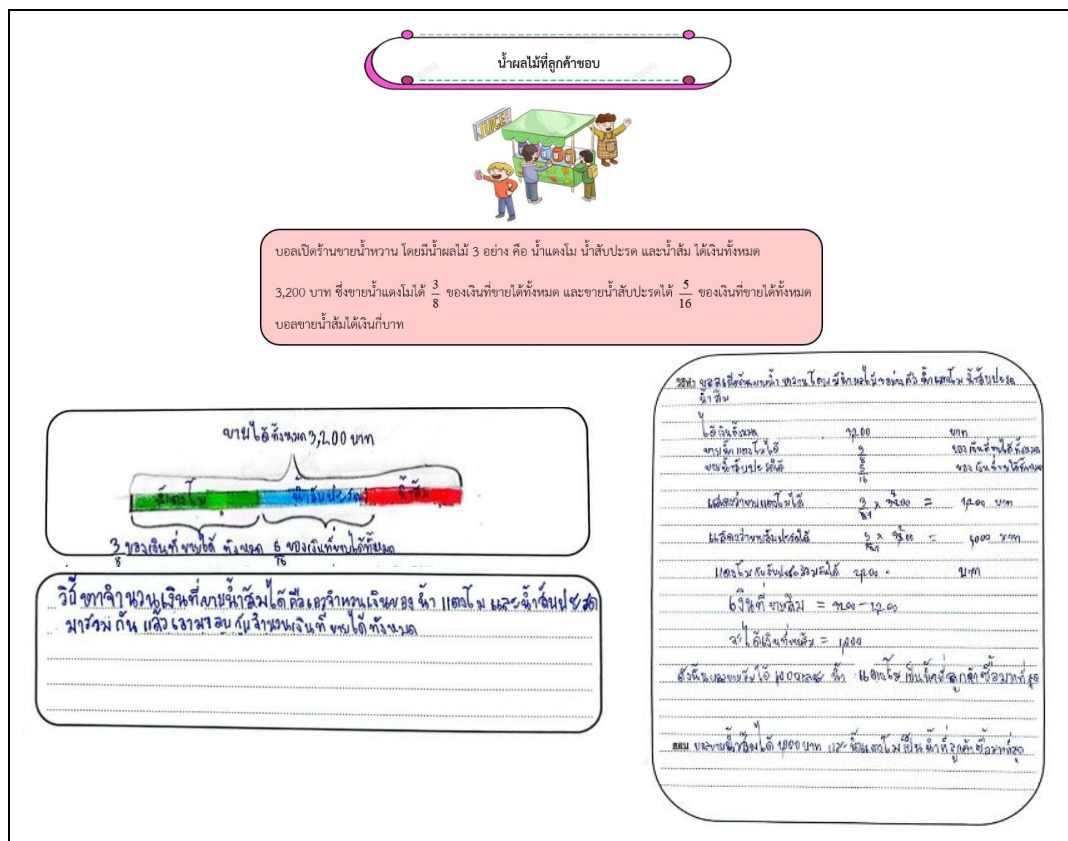 น้ำผลไม้ที่ลูกค้าชอบ
JUICE
บอลเปิดร้านขายน้ำหวาน โดยมีน้ำผลไม้ 3 อย่าง คือ น้ำแตงโม น้ำสับปะรด และน้ำส้ม ได้เงินทั้งหมด
3,200 บาท ซึ่งขายน้ำแตงโมได้ 3/8 ของเงินที่ขายได้ทั้งหมด และขายน้ำสับปะรดได้ 5/16 ของเงินที่ขายได้ทั้งหมด
บอลขายน้ำส้มได้เงินกี่บาท
ขายได้ทั้งหมด 3,200 บาท
น้ำแตงโม น้ำสับปะรด น้ำส้ม
3/8 ของเงินที่ขายได้ ทั้งหมด 5/16 ของเงินที่ขายได้ทั้งหมด
วิธีหาจำนวนเงินที่ขายน้ำส้มได้ คือเอาจำนวนเงินของ น้ำ แตงโม และน้ำสับปะรด
มารวมกัน แล้วเอามาลบกับจำนวนเงินที่ ขายได้ ทั้งหมด
วิธีทำ บอลเปิดร้านขายน้ำหวานโดยมีน้ำผลไม้ 3 อย่าง คือ น้ำแตงโม น้ำสับปะรด
น้ำส้ม
ได้เงินทั้งหมด 3,200 บาท
ขายน้ำแตงโมได้ 3/8 ของเงินที่ขายได้ทั้งหมด
ขายน้ำสับปะรดได้ 5/16 ของเงินที่ขายได้ทั้งหมด
แสดงว่าขายแตงโมได้ 3/8 × 3200 = 1,200 บาท
แสดงว่าขายสับปะรดได้ 5/16 × 3200 = 1,000 บาท
แตงโมกับสับปะรดรวมกันได้ 2,200 บาท
เงินที่ขายส้ม =
จะได้เงินที่ขายส้ม = 1,000
ดังนั้นบอลขายส้มได้ 1,000 และ น้ำ แตงโมเป็นน้ำที่ลูกค้าซื้อมากที่สุด
ตอบ บอลขายน้ำส้มได้ 1,000 บาท และ น้ำแตงโมเป็นน้ำที่ลูกค้าซื้อมากที่สุด